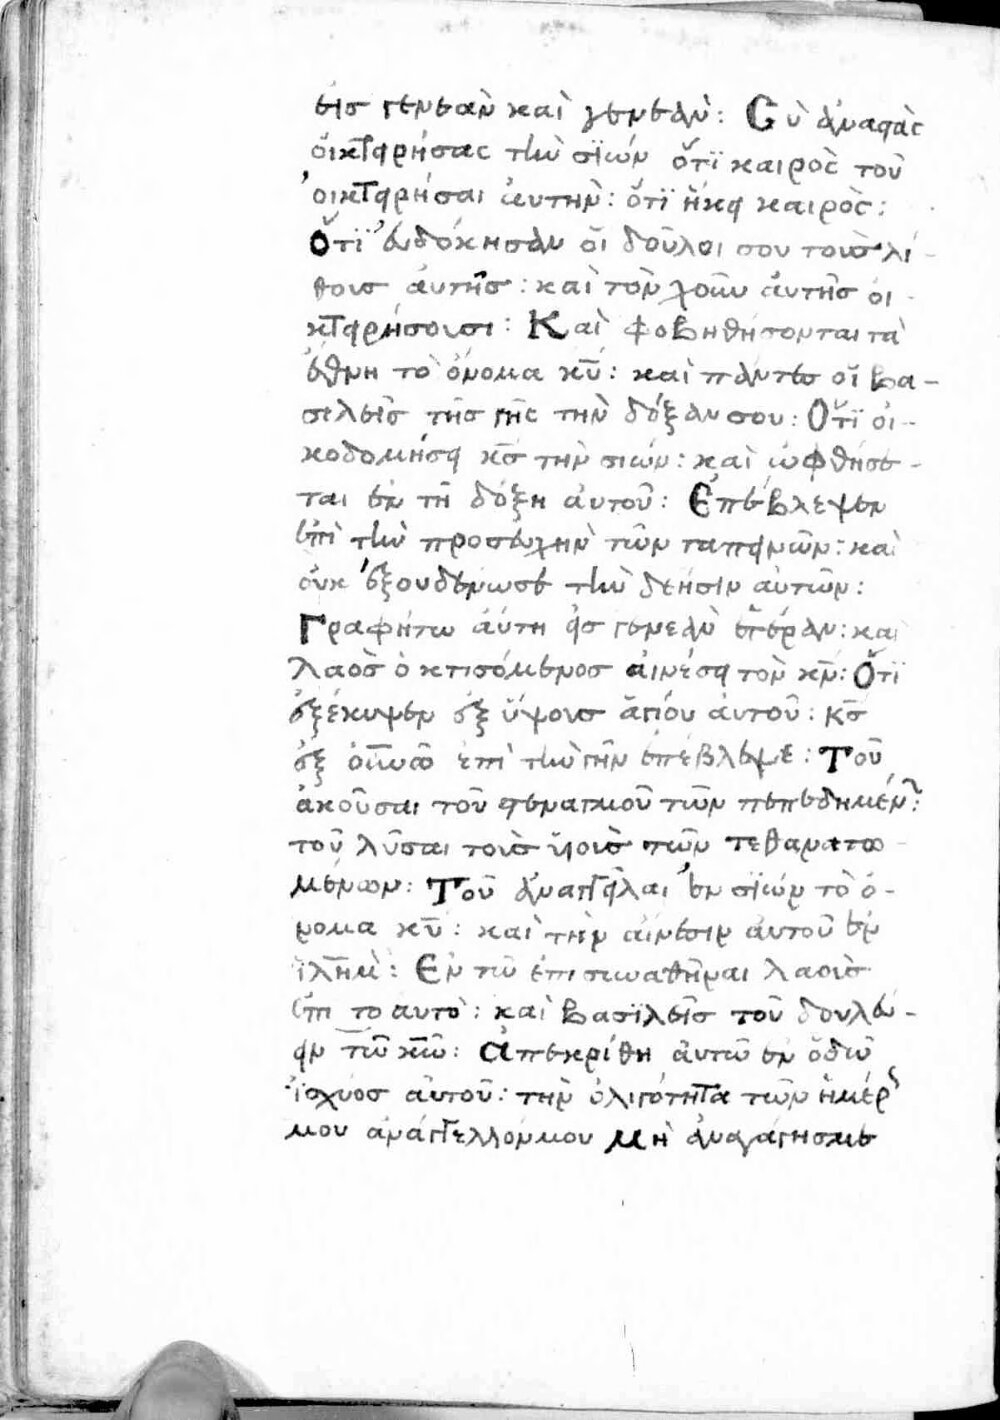 εἰσ γενεαν καὶ γενεὰν: Σὺ ἀναστὰς
ὀικτειρήσας τὴν σϊών ὅτϊ καιρὸς τοῦ
ὀικτειρήσαι ἀυτὴν: ὅτϊ ἥκει καιρὸς:
Ὅτϊ ἐυδόκησαν ὅι δοῦλοι σου τοὺσ λί-
θουσ ἀυτῆσ: καὶ τὸν χοῦν ἀυτῆσ ὀι-
κτειρήσουσι: Καὶ φοβηθήσονται τὰ
ἔθνη τὸ ὄνομα κ̅υ̅: καὶ πάντεσ ὅι βα-
σιλεῖσ τῆσ γῆς τὴν δόξαν σου: Ὅτϊ ὀι-
κοδομήσει κ̅σ̅ τὴν σιών: καὶ ὠφθήσε-
ται ἐν τῆ δόξη ἀυτοῦ: Ἐπέβλεψεν
ἐπὶ τὴν προσευχὴν τῶν ταπεινῶν: καὶ
ὀυκ ἐξουδένωσε τὴν δέησιν ἀυτῶν:
Γραφήτω ἀύτη εἰσ γενεὰν ἑτέραν: καὶ
λαὸσ ὁ κτισόμενοσ ἀινέσει τὸν κ̅ν̅: Ὅτϊ
ἐξέκυψεν ἐξ ὕψουσ ἁγίου ἀυτοῦ: κ̅σ̅
ἐξ ὀυ̅ν̅ου̅ ἐπὶ τὴν γῆν ἐπέβλεψε: Τοῦ
ἀκοῦσαι τοῦ στεναγμοῦ τῶν πεπεδημέν:
τοῦ λῦσαι τοὺσ ὑιοὺσ τῶν τεθανατω-
μένων: Τοῦ ἀναγγεῖλαι ἐν σϊών τὸ ὄ-
νομα κ̅υ̅: καὶ τὴν ἀίνεσιν ἀυτοῦ ἐν
ϊλ̅η̅μ̅: Ἐν τῶ ἐπισυναθῆναι λαοὺσ
ἐπι το αυτὸ: καὶ βασϊλεῖσ τοῦ δουλεύ-
ειν τῶ κ̅ω̅: Ἀπεκρίθη ἀυτῶ ἐν ὁδῶ
ϊσχύοσ ἀυτοῦ: τὴν ὀλιγότητα τῶν ἡμερ
μου ἀνάγγειλλόνμου Μὴ ἀναγάγησμε